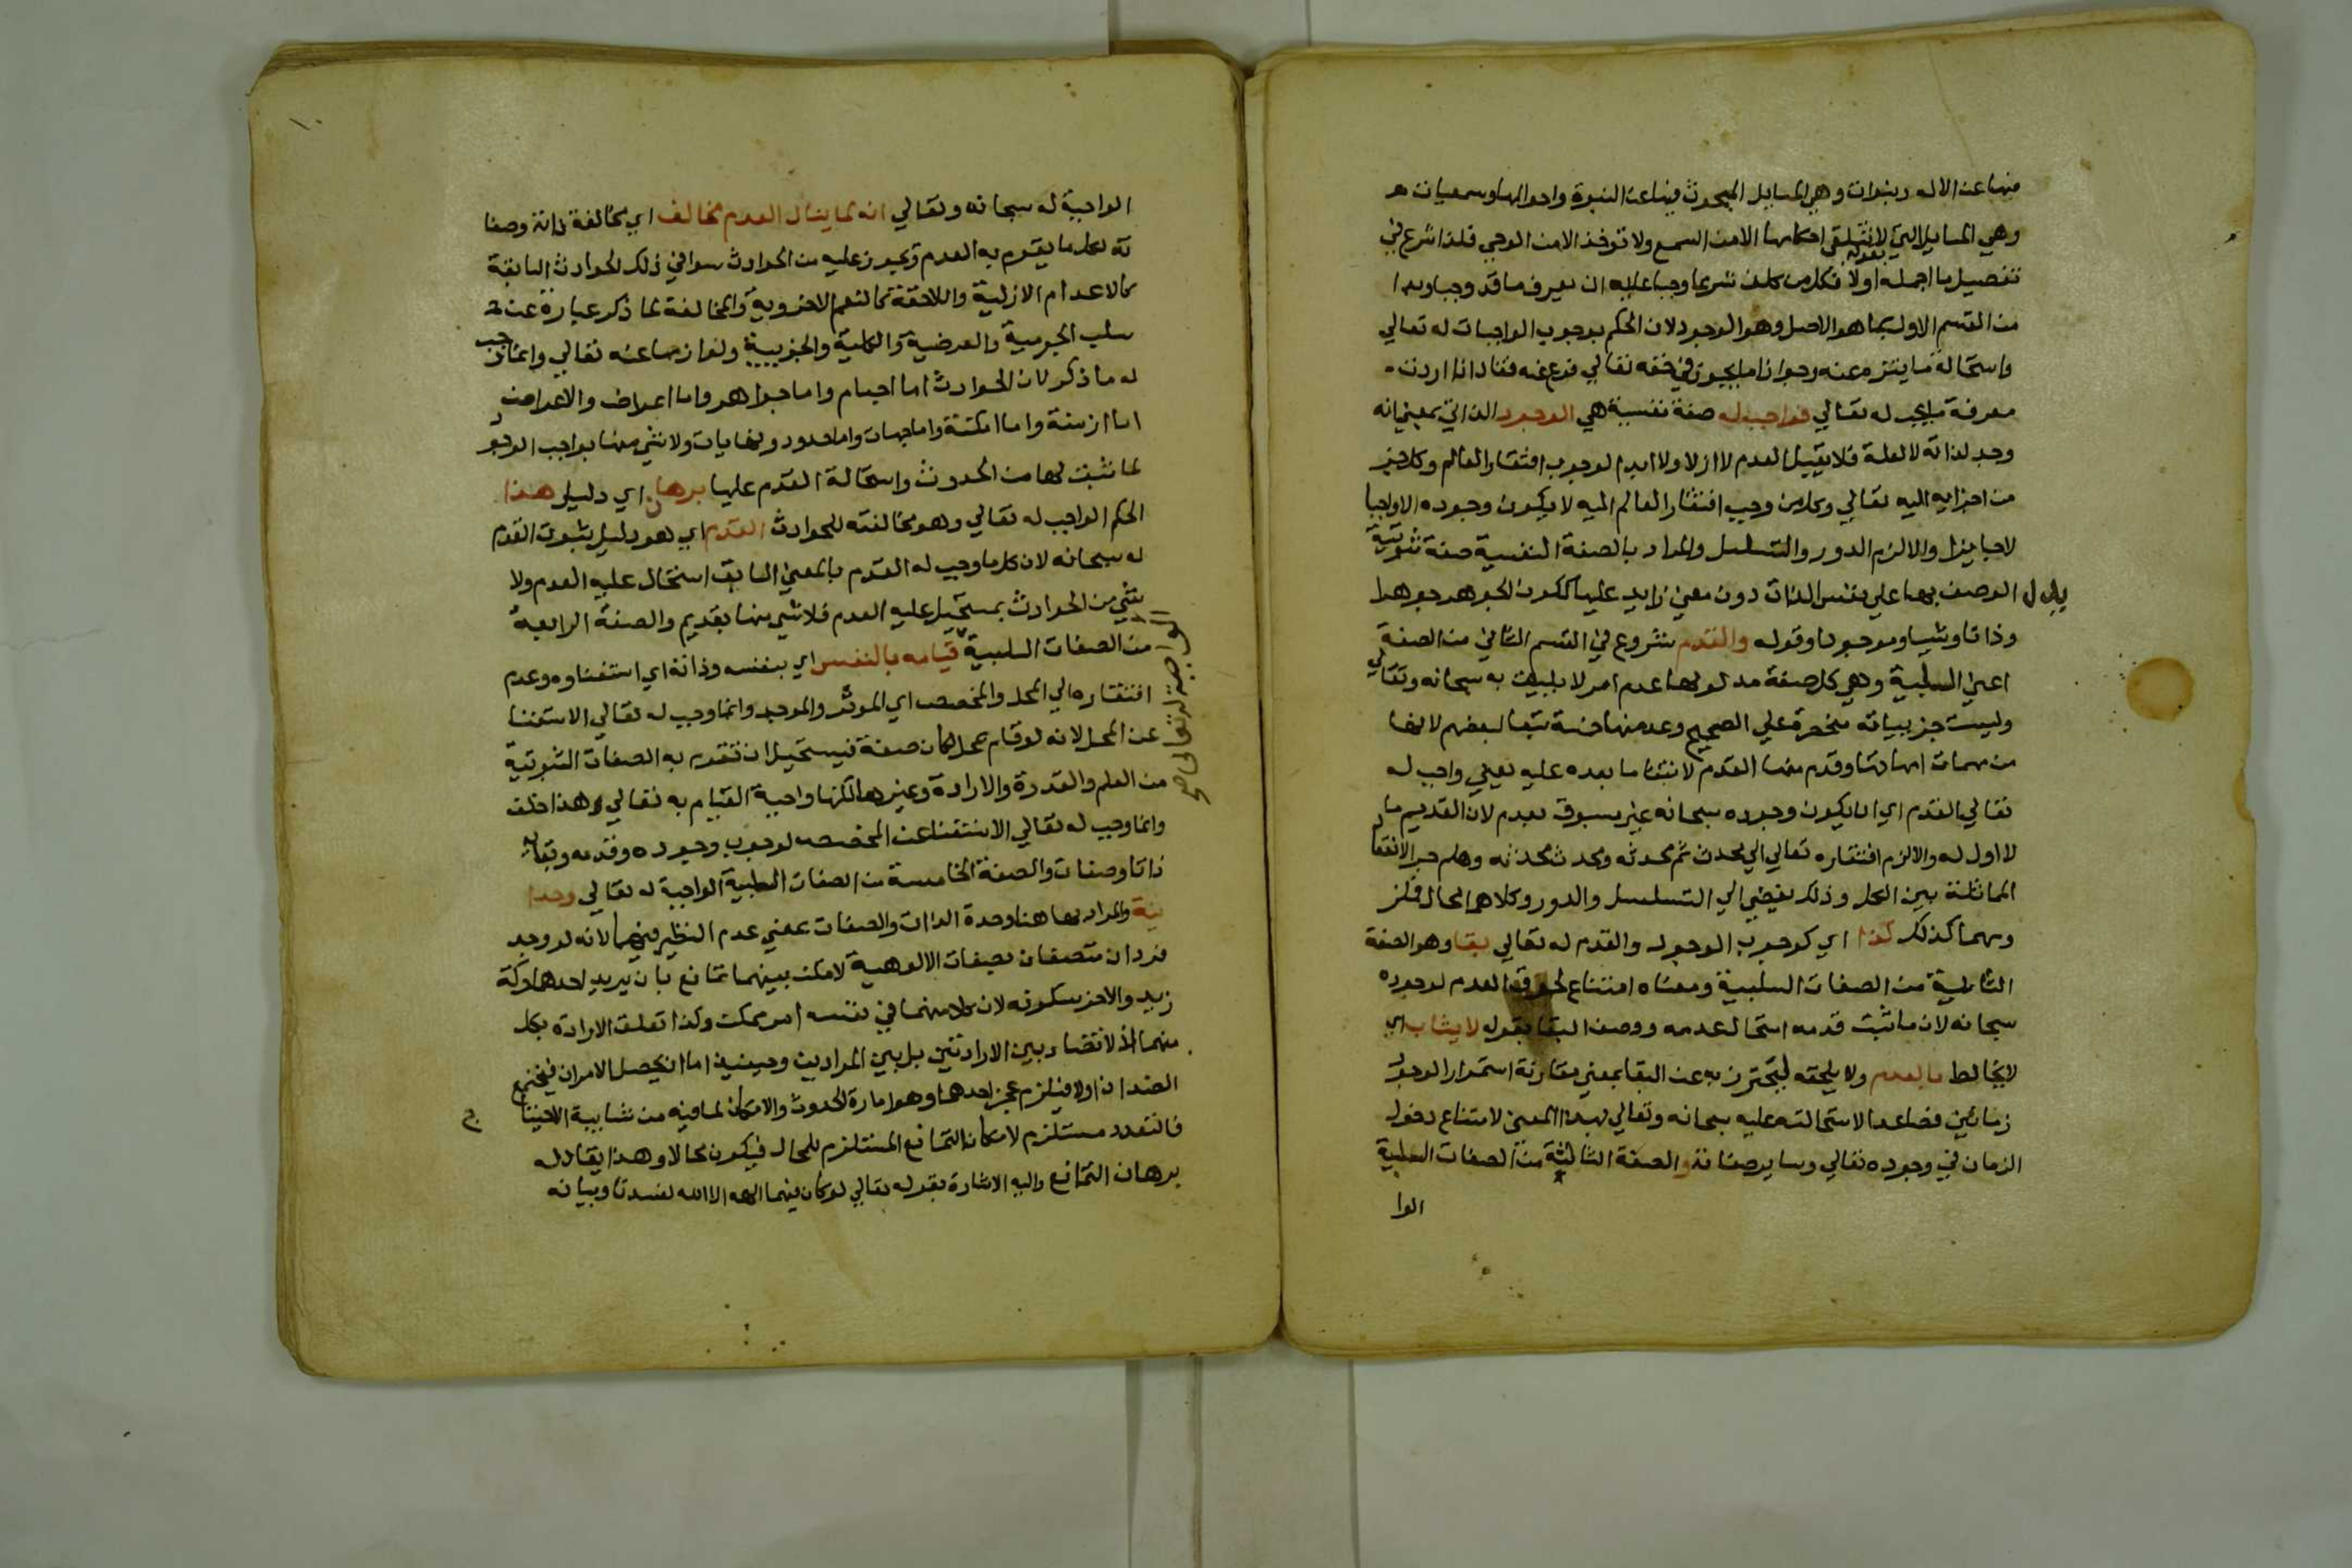 فيها عن الاله ونبوات وهي المسايل المبحوث فيها عن النبوة واحوالها وسمعيات
وهي المسايل التي لا تتلقى احكامها الا من السمع ولا توخذ الا من الوحي فلذا شرع في
تفصيل ما اجمله اولا بقوله فكل من كلف شرعا وجبا عليه ان يعرف ما قد وجبا وبدا
من القسم الاول بما هو الاصل وهو الوجود لان الحكم بوجوب الواجبات له تعالي
واستحالة ما يتنزه عنه وجواز ما يجوز في حقه تعالي فرع عنه فقال اذا اردت
معرفة ما يجب له تعالي فواجب له صفة نفسية هي الوجود الذاتي بمعني انه
وجد لذاته لا لعلة فلا يقبل العدم لا ازلا ولا ابدا لوجوب افتقار العالم وكل جز
من اجزايه اليه تعالي وكل من وجب افتقار العالم اليه لا يكون وجوده الا واجبا
لا جايزا والا لزم الدور والتسلسل والمراد بالصفة النفسية صفة ثبوتية
يدل الوصف بها علي نفس الذات دون معني زايد عليها ككون الجوهر جوهرا
وذاتا وشيا وموجودا وقوله والقدم شروع في القسم الثاني من الصفة
اعني السلبية وهي كل صفة مدلولها عدم امر لا يليق به سبحانه وتعالي
وليست جزيياته منحصرة علي الصحيح وعد منها خمسة تبعا لبعضهم لانها
من مهمات امهاتها وقدم منها القدم لابتنا ما بعده عليه يعني واجب له
تعالي القدم اي ان يكون وجوده سبحانه غير مسبوق بعدم لان القديم ما
لا اول له والا لزم افتقاره تعالي الي محدث ثم محدثه ومحدث محدثه وهلم جرا لانعقاد
المماثلة بين الكل وذلك يفضي الي التسلسل والدور وكلاهما محال فملز
ومهما كذلك كذا اي كوجوب الوجود والقدم له تعالي بقا وهو الصفة
الثانية من الصفات السلبية ومعناه امتناع لحوق العدم لوجوده
سبحانه لان ما ثبت قدمه استحال عدمه ووصف البقا بقوله لا يشاب اي
لا يخالط بالعدم ولا يلحقه ليحترز به عن البقا بمعني مقارنة استمرار الوجود
زمانين فصاعدا لاستحالته عليه سبحانه وتعالي بهذا المعني لامتناع دخول
الزمان في وجوده تعالي وساير صفاته والصفة الثالثة من الصفات السلبية
الوا
الواجبة له سبحانه وتعالي انه لما ينال العدم مخالف اي مخالفة ذاته وصفا
ته لكل ما يقوم به العدم ويجوز عليه من الحوادث سوا في ذلك الحوادث السابقة
كالاعدام الازلية واللاحقة كالنعم الاخروية والمخالفة لما ذكر عبارة عن
سلب الجرمية والعرضية والكلية والجزيية ولوازمها عنه تعالي وانما وجب
له ما ذكر لان الحوادث اما اجسام واما جواهر واما اعراض والاعراض
اما ازمنة واما امكنة واما جهات واما حدود ونهايات ولا شي منها بواجب الوجود
لما ثبت لها من الحدوث واستحالة القدم عليها برهان اي دليل هذا
الحكم الواجب له تعالي وهو مخالفته للحوادث القدم اي هو دليل ثبوت القدم
له سبحانه لان كل ما وجب له القدم بالمعني السابق استحال عليه العدم ولا
شي من الحوادث بمستحيل عليه العدم فلا شي منها بقديم والصفة الرابعة
من الصفات السلبية قيامه بالنفس اي بنفسه وذاته اي استغناوه وعدم
الواجبة له تعالي صح
افتقاره الي المحل والمخصص اي الموثر والموجد وانما وجب له تعالي الاستغنا
عن المحل لانه لو قام بمحل لكان صفة فيستحيل ان تقوم به الصفات الثبوتية
من العلم والقدرة والارادة وغيرها لكنها واجبة القيام به تعالي وهذا خلف
وانما وجب له تعالي الاستغنا عن المخصص لوجوب وجوده وقدمه وبقايه
ذاتا وصفات والصفة الخامسة من الصفات السلبية الواجبة له تعالي وحدا
نية والمراد بها هنا وحدة الذات والصفات بمعني عدم النظير فيهما لانه لو وجد
فردان متصفان بصفات الالوهية لامكن بينهما تمانع بان يريد احدهما حركة
زيد والاخر سكونه لان كلا منهما في نفسه امر ممكن وكذا تعلق الارادة بكل
منهما اذ لا تضاد بين الارادتين بل بين المرادين وحينيذ اما ان يحصل الامران فيجتمع
الضدان اولا فيلزم عجز احدهما وهو امارة الحدوث والامكان لما فيه من شايبة الاحتياج
فالتعدد مستلزم لامكان التمانع المستلزم للمحال فيكون محالا وهذا يقال له
برهان التمانع واليه الاشارة بقوله تعالي لو كان فيهما الهة الا الله لفسدتا وبيانه